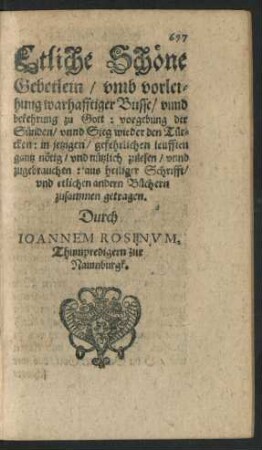 677
Etliche Schöne
Gebetlein / vmb vorlei-
hung warhafftiger Busse / vnnd
bekehrung zu Gott: vorgebung der
Sünden / vnnd Sieg wieder den Tür-
cken: in jetzigen / gefehrlichen leufften
gantz nötig / vnd nützlich zulesen / vnnd
zugebrauchen: aus heiliger Schrifft /
vnd etlichen andern Büchern
zusammen getragen.
Durch
IOANNEM ROSINVM.
Thumpredigern zur
Naumburgk.